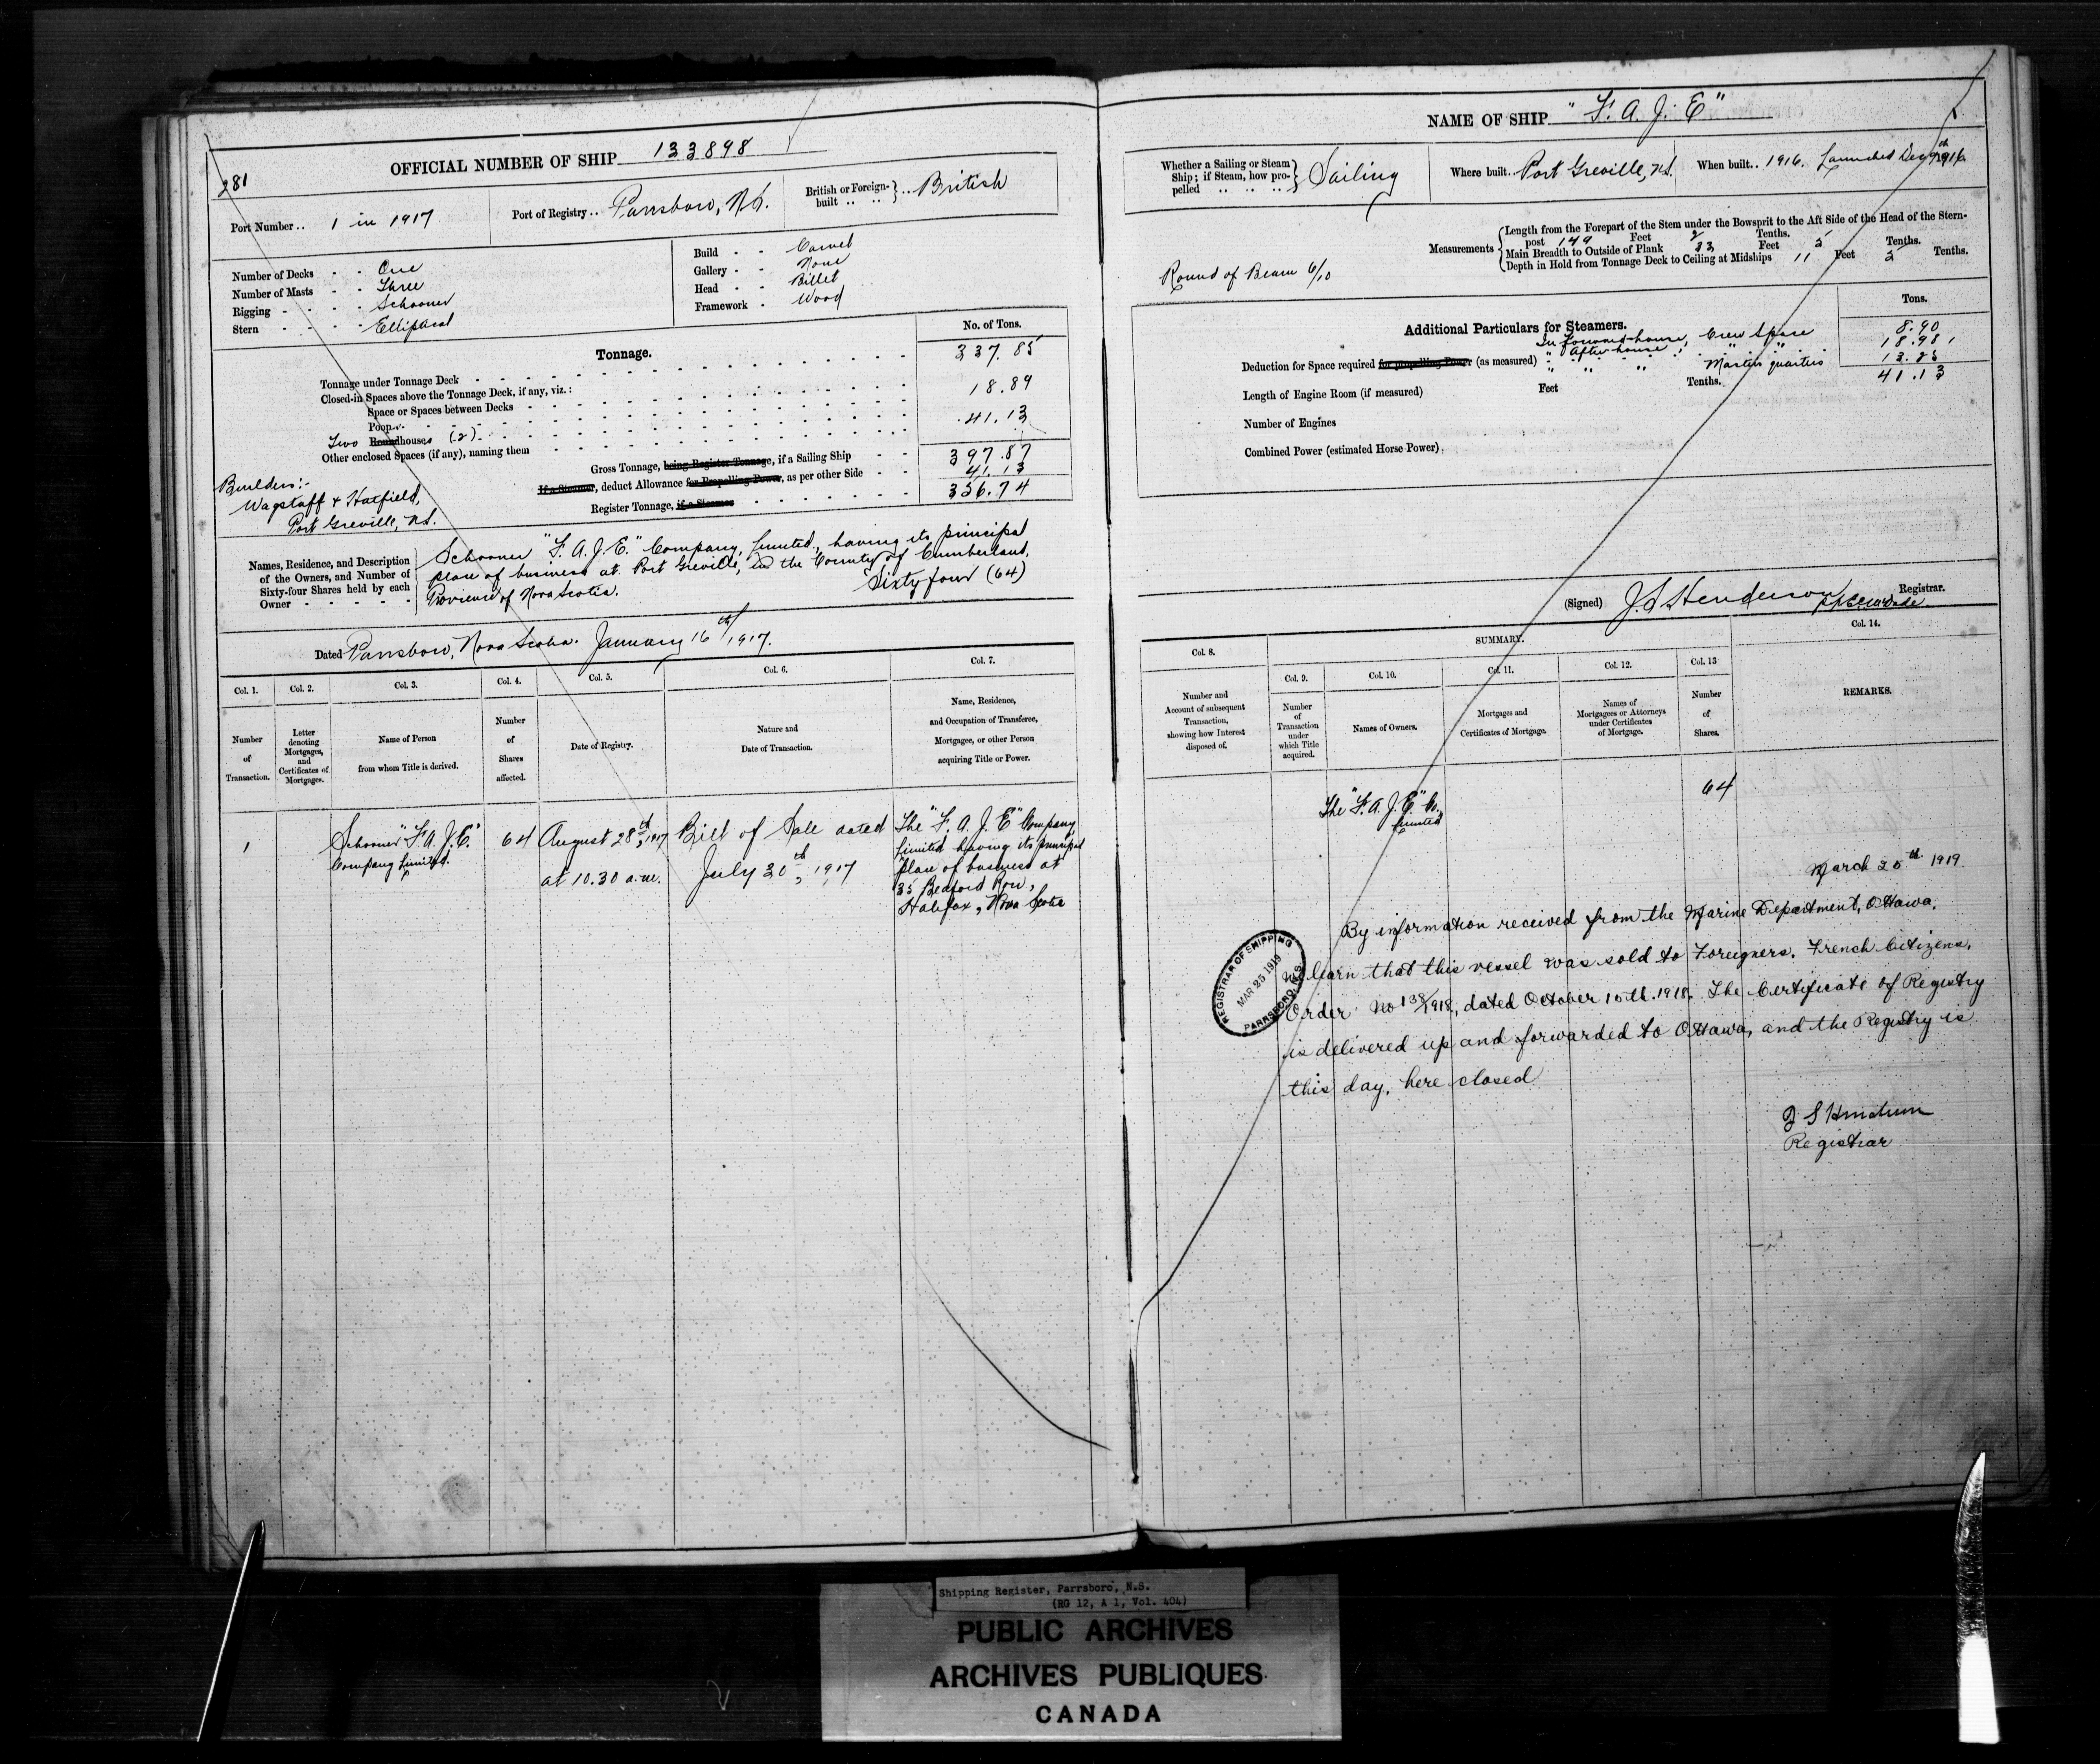 281
OFFICIAL NUMBER OF SHIP 133898
Port Number .. 1 in 1917
Port of Registry .. Parrsboro, N.S.
British or Foreign-built .. .. British
Number of Decks - - One
Number of Masts - - Three
Rigging - - - - Schooner
Stern - - - - Elliptical
Build - - Carvel
Gallery - - None
Head - - Billet
Framework - Wood
Tonnage.
No. of Tons.
Tonnage under Tonnage Deck 337.85
Closed-in Spaces above the Tonnage Deck, if any, viz.:
Space or Spaces between Decks
Poop 18.89
Two Roundhouses (2) 41.13
Other enclosed Spaces (if any), naming them
Gross Tonnage, being Register Tonnage, if a Sailing Ship 397.87
If a Steamer, deduct Allowance for Propelling Power, as per other Side 41.13
Register Tonnage, if a Steamer 356.74
Builders:-
Wagstaff & Hatfield,
Port Greville, N.S.
Names, Residence, and Description
of the Owners, and Number of
Sixty-four Shares held by each
Owner - - - -
Schooner "F. A. J. E." Company, Limited, having its principal
place of business at Port Greville, in the County of Cumberland,
Province of Nova Scotia. Sixty four (64)
Dated Parrsboro, Nova Scotia. January 16th, 1917.
Col. 1. Col. 2. Col. 3. Col. 4. Col. 5. Col. 6. Col. 7.
Number of Transaction.
Letter denoting Mortgages, and Certificates of Mortgages.
Name of Person from whom Title is derived.
Number of Shares affected.
Date of Registry.
Nature and Date of Transaction.
Name, Residence, and Occupation of Transferee, Mortgagee, or other Person acquiring Title or Power.
1
Schooner "F. A. J. E."
Company Limited.
64
August 28th, 1917
at 10.30 a.m.
Bill of Sale dated
July 30th, 1917
The "F. A. J. E" Company
Limited having its principal
place of business at
35 Bedford Row,
Halifax, Nova Scotia
NAME OF SHIP "F. A. J. E"
Whether a Sailing or Steam
Ship; if Steam, how pro-
pelled .. .. .. Sailing
Where built .. Port Greville, N.S.
When built .. 1916. Launched Dec 9th 1916
Measurements
Length from the Forepart of the Stem under the Bowsprit to the Aft Side of the Head of the Stern-
post 149 Feet 2 Tenths.
Main Breadth to Outside of Plank 33 Feet 5 Tenths.
Depth in Hold from Tonnage Deck to Ceiling at Midships 11 Feet 3 Tenths.
Round of Beam 6/10
Tons.
Additional Particulars for Steamers.
In Forward house, Crew Space 8.90
Deduction for Space required for propelling Power (as measured) " After house, " " 18.98
" " " Masters quarters 13.25
41.13
Length of Engine Room (if measured) Feet Tenths.
Number of Engines
Combined Power (estimated Horse Power)
(Signed) J S Henderson Registrar.
SUMMARY.
Col. 8. Col. 9. Col. 10. Col. 11. Col. 12. Col. 13 Col. 14.
Number and Account of subsequent Transaction, showing how Interest disposed of.
Number of Transaction under which Title acquired.
Names of Owners.
Mortgages and Certificates of Mortgage.
Names of Mortgagees or Attorneys under Certificates of Mortgage.
Number of Shares.
REMARKS.
The "F. A. J. E" Co.
Limited
64
March 25th 1919.
By information received from the Marine Department, Ottawa,
we learn that this vessel was sold to Foreigners. French Citizens.
Order No 138/1918, dated October 15th. 1918. The Certificate of Registry
is delivered up and forwarded to Ottawa, and the Registry is
this day, here closed
J S Henderson
Registrar
REGISTRAR OF SHIPPING
MAR 25 1919
PARRSBORO, N.S.
Shipping Register, Parrsboro, N.S.
(RG 12, A 1, Vol. 404)
PUBLIC ARCHIVES
ARCHIVES PUBLIQUES
CANADA